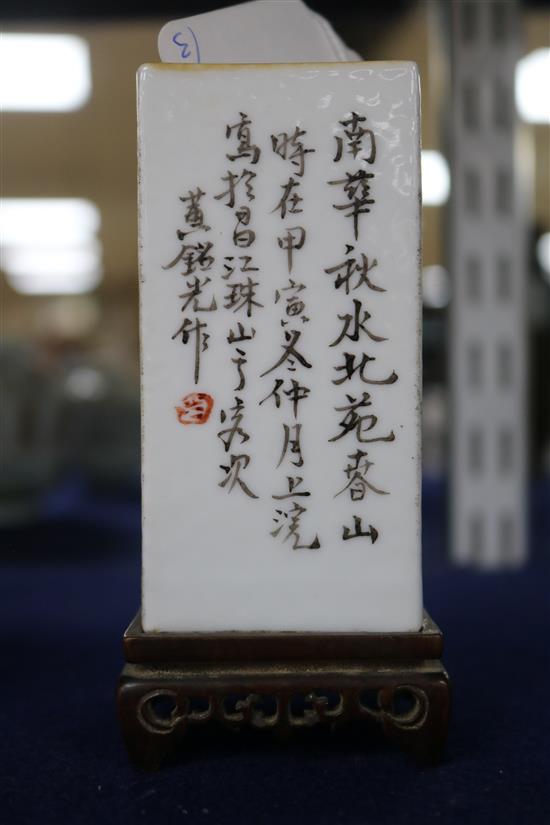 南華秋水北苑春山
時在甲寅冬仲月上浣
寫於昌江珠山之客次
黃銘光作
3